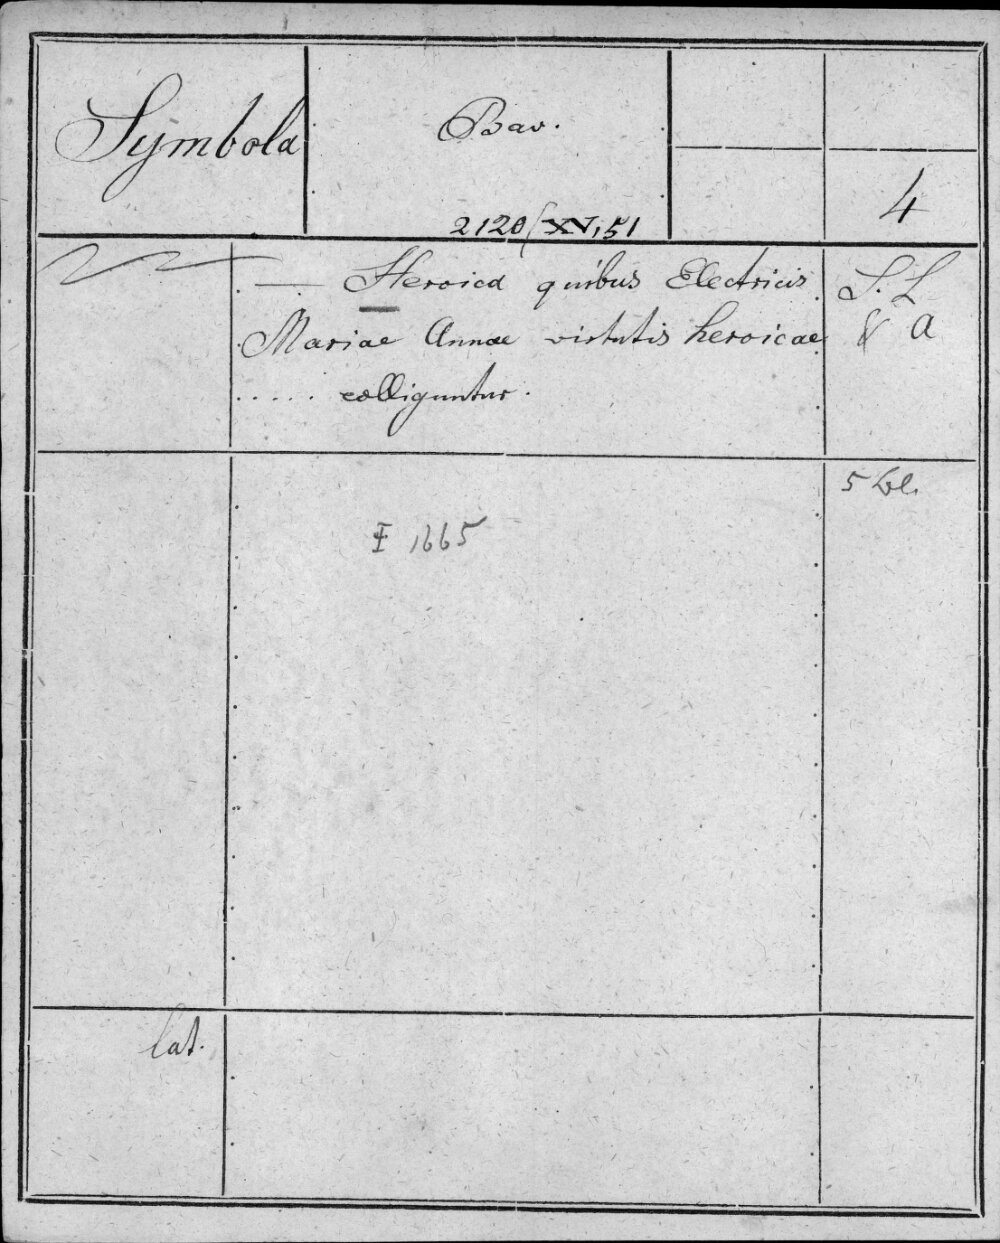 Symbola
Bav.
4
2120/XV,51
— Heroica quibus Electricis
Mariae Annae virtutis heroicae
..... colliguntur.
S. L
& a
5 bl.
1665
lat.